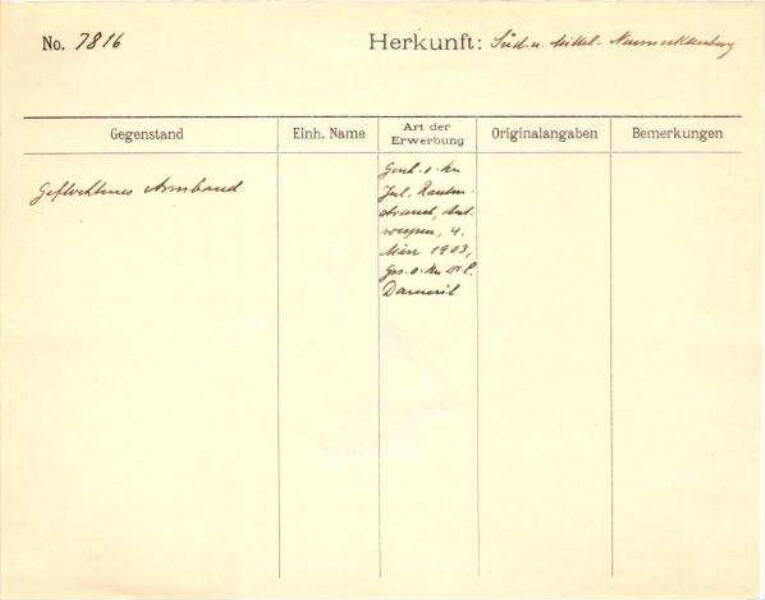 No. 7816
Herkunft: Süd- u. Mittel-Neumecklenburg
Gegenstand
Einh. Name
Art der Erwerbung
Originalangaben
Bemerkungen
Geflochtenes Armband
Gesch. v. Hn
Jul. Rauten-
strauch, Ant-
werpen, 4.
März 1903,
Ges. v. Hn